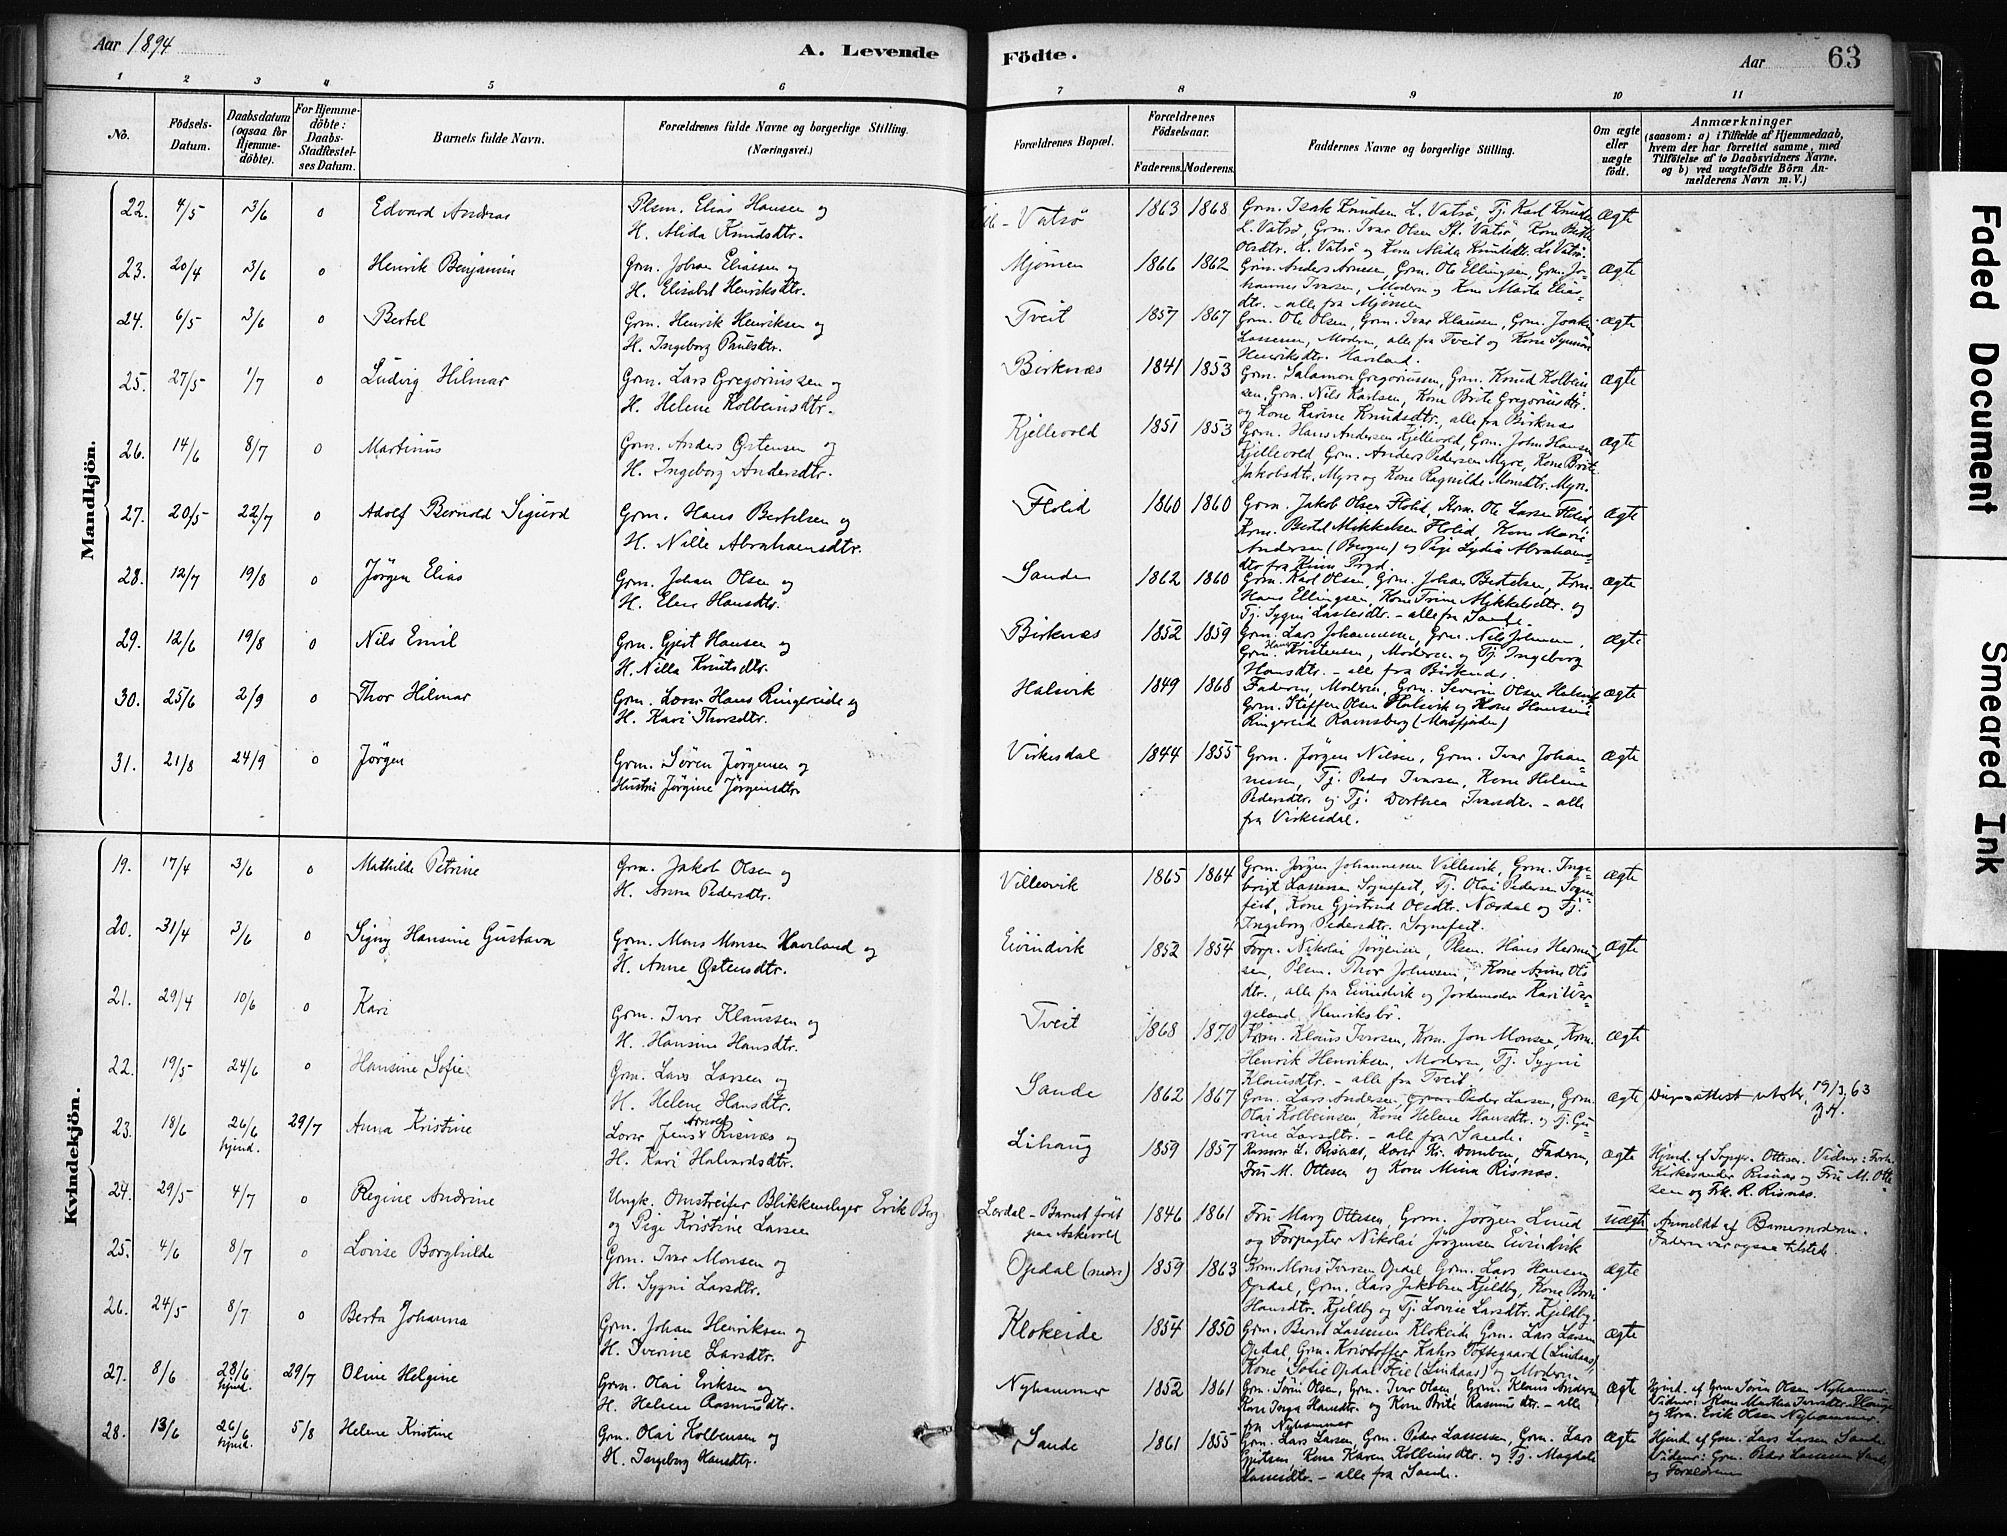 Aar 1894
A. Levende
Födte.
Aar
63
1 2 3 4 5 6 7 8 9 10 11
No.
Födsels-Datum.
Daabsdatum (ogsaa for Hjemme-döbte).
For Hjemme-döbte: Daabs-Stadfæstel-ses Datum.
Barnets fulde Navn.
Forældrenes fulde Navne og borgerlige Stilling. (Næringsvei.)
Forældrenes Bopæl.
Forældrenes Födselsaar.
Faderens. Moderens.
Faddernes Navne og borgerlige Stilling.
Om ægte eller uægte födt.
Anmærkninger
(saasom: a) i Tilfælde af Hjemmedaab, hvem der har forrettet samme, med Tilföielse af to Daabsvidners Navne. og b) ved uægtefödte Börn An-melderens Navn m.V.)
Mandkjön.
22. 4/5 3/6 0 Edvard Andreas
Plsm. Elias Hansen og
H. Alida Knudsdtr.
Vatsö 1863 1868
Grm. Isak Knudsen L. Vatsö, Tj. Karl Knudsen
L. Vatsö, Grm. Ivar Olsen St. Vatsö, Kone Berte
Olsdtr. L. Vatsö og Kone Alida Knudsdtr. L. Vatsö.
ægte
23. 20/4 3/6 0 Henrik Benjamin
Grm. Johan Eliassen og
H. Elisabet Henriksdtr.
Mjömen 1866 1862
Grm. Anders Arnesen, Grm. Ole Ellingsen, Grm. Jo-
hannes Ivarsen, Moderen og Kone Marta Elias-
dtr. - alle fra Mjömen
ægte
24. 6/5 3/6 0 Bertel
Grm. Henrik Henriksen og
H. Ingeborg Paulsdtr.
Tveit 1857 1867
Grm. Ole Olsen, Grm. Ivar Klausen, Grm. Joakim
Lassesen, Moderen, alle fra Tveit og Kone Synnöve
Henriksdtr. Haveland.
ægte
25. 27/5 1/7 0 Ludvig Hilmar
Grm. Lars Gregoriussen og
H. Helene Kolbeinsdtr.
Birknæs 1841 1853
Grm. Salamon Gregoriussen, Grm. Knud Kolbein
sen, Grm. Nils Karlsen, Kone Brite Gregoriusdtr.
og Kone Karine Knudsdtr., alle fra Birknæs
ægte
26. 14/6 8/7 0 Martinus
Grm. Anders Östensen og
H. Ingeborg Andersdtr.
Kjellevold 1851 1853
Grm. Hans Andersen Kjellevold, Grm. John Hansen
Kjellevold Grm. Anders Pedersen Myre, Kone Brite
Jakobsdtr. Myre og Kone Ragnilde Monsdtr. Myre.
ægte
27. 20/5 22/7 0 Adolf Bernold Sigurd
Grm. Hans Bertelsen og
H. Nille Abrahamsdtr.
Flolid 1860 1860
Grm. Jakob Olsen Flolid, Krm. Ole Larsen Flolid,
Krm. Bertel Mikkelsen Flolid, Kone Marie
Andersen (Bergen) og Pige Lydia Abrahams
dtr fra Kinn Prgd.
ægte
28. 12/7 19/8 0 Jörgen Elias
Grm. Johan Olsen og
H. Elen Hansdtr.
Sande 1862 1860
Grm. Karl Olsen, Grm. Johan Bertelsen, Krm.
Hans Ellingsen, Kone Trine Mikkelsdtr. og
Tj. Sygni Lassesdtr. - alle fra Sande.
ægte
29. 12/6 19/8 0 Nils Emil
Grm. Gjert Hansen og
H. Nilla Knutsdtr.
Birknæs 1852 1859
Grm. Lars Johannesen, Grm. Nils Johnsen,
Grm. Hans Kristensen, Moderen og Tj. Ingeborg
Hansdtr. - alle fra Birknæs.
ægte
30. 25/6 2/9 0 Thor Hilmar
Grm. Lærer Hans Ringereide og
H. Kari Thorsdtr.
Halsvik 1849 1868
Faderen, Moderen, Grm. Severin Olsen Halsvik
Grm. Steffen Olsen Halsvik og Kone Hansine
Ringereide Ramsberg (Masfjorden)
ægte
31. 21/8 24/9 0 Jörgen
Grm. Sören Jörgensen og
Hustru Jörgine Jörgensdtr.
Virkesdal 1844 1855
Grm. Jörgen Nilsen, Grm. Ivar Johan-
nesen, Tj. Peder Ivarsen, Kone Helene
Pedersdtr. og Tj. Dorthea Ivarsdtr. - alle
fra Virkesdal.
ægte
Kvindekjön.
19. 17/4 3/6 0 Mathilde Petrine
Grm. Jakob Olsen og
H. Anna Pedersdtr.
Villesvik 1865 1864
Grm. Jörgen Johannesen Villesvik, Grm. Inge-
brigt Lassesen Sognefest, Tj. Olai Pedersen Sogne-
fest, Kone Gjertrud Olsdtr. Næsdal og Tj.
Ingeborg Pedersdtr. Sognefest.
ægte
20. 31/4 3/6 0 Signy Hansine Gustava
Grm. Mons Monsen Haveland og
H. Anne Östensdtr.
Eivindvik 1852 1854
Forp. Nikolai Jörgensen, Plsm. Hans Herman
sen, Plsm. Thor Johnsen, Kone Anne Ols
dtr., alle fra Eivindvik og Jordemoder Kari Wer-
geland Henriksbö.
ægte
21. 29/4 10/6 0 Kari
Grm. Ivar Klaussen og
H. Hansine Hansdtr.
Tveit 1868 1870
Krm. Klaus Ivarsen, Krm. Jon Monsen, Krm.
Henrik Henriksen, Moderen, Tj. Sygni
Klausdtr. - alle fra Tveit
ægte
22. 19/5 24/6 0 Hansine Sofie
Grm. Lars Larsen og
H. Helene Hansdtr.
Sande 1862 1867
Grm. Lars Andersen, Grm. Peder Larsen, Grm.
Olai Kolbeinsen, Kone Helene Hansdtr. og Tj. Gu-
rine Larsdtr. - alle fra Sande.
ægte Dåpsattest utstr. 19/3, 63
23. 18/6 26/6 hjmd. 29/7 Anna Kristine
Lærer Jens Arnold Risnæs og
H. Kari Halvardsdtr.
Lihaug 1859 1857
Rasmus L. Risnæs, Lærer Kr. Domben, Faderen,
Fru M. Ottesen og Kone Mina Risnæs.
ægte
Hjmd. af Sogpr. Ottesen. Vidner: Forh.
Kirkesanger Risnæs og Fru M. Otte-
sen og Frk. R. Risnæs.
24. 29/5 4/7 0 Regine Andrine
Ungk. Omstreifer Blikkenslager Erik Berg
og Pige Kristine Larsen
Lærdal - Barnet födt
paa Askevold
1846 1861
Fru Mary Ottesen, Grm. Jörgen Lund
og Forpagter Nikolai Jörgensen Eivindvik
uægte
Anmeldt af Barnemoderen.
Faderen var ogsaa tilstede.
25. 4/6 8/7 0 Lovise Borghilde
Grm. Ivar Monsen og
H. Sygni Larsdtr.
Opdal (nedre) 1859 1863
Krm. Mons Ivarsen Opdal, Grm. Lars Hansen
Opdal, Grm. Lars Jakobsen Kjeldby, Kone Berte
Hansdtr. Kjeldby og Tj. Lovise Larsdtr. Kjeldby.
ægte
26. 24/5 8/7 0 Berta Johanna
Grm. Johan Henriksen og
H. Iverine Larsdtr.
Klokeide 1854 1850
Grm. Bernt Lassesen Klokeide, Grm. Lars Larsen
Opdal, Grm. Kristoffer Kahrs Toftegaard (Lindaas),
Kone Sofie Opdal Feie (Lindaas) og Moderen.
ægte
27. 8/6 28/6 hjmd. 29/7 Oline Helgine
Grm. Olai Eriksen og
H. Helene Rasmusdtr.
Nyhammer 1852 1861
Grm. Sörin Olsen, Grm. Ivar Olsen, Grm. Klaus Andersen
Kone Inga Hansdtr. og Kone Brite Rasmusdtr. - alle
fra Nyhammer
ægte
Hjmd. af Grm Sörin Olsen Nyhammer.
Vidner: Kone Marthe Iversdtr. Hauge
og Krm. Erik Olsen Nyhammer.
28. 13/6 26/6 hjmd. 5/8 Helene Kristine
Grm. Olai Kolbensen og
H. Ingeborg Hansdtr.
Sande 1861 1855
Grm. Lars Larsen, Grm. Peder Lassesen, Grm. Lars
Gjertsen, Kone Karen Kolbeinsdtr. og Tj. Magdale
Lassesdtr. - alle fra Sande.
ægte
Hjmd. af Grm. Lars Larsen Sande
Vidner: Grm. Peder Lassesen Sande
og Forældrene
Faded Document
Smeared Ink